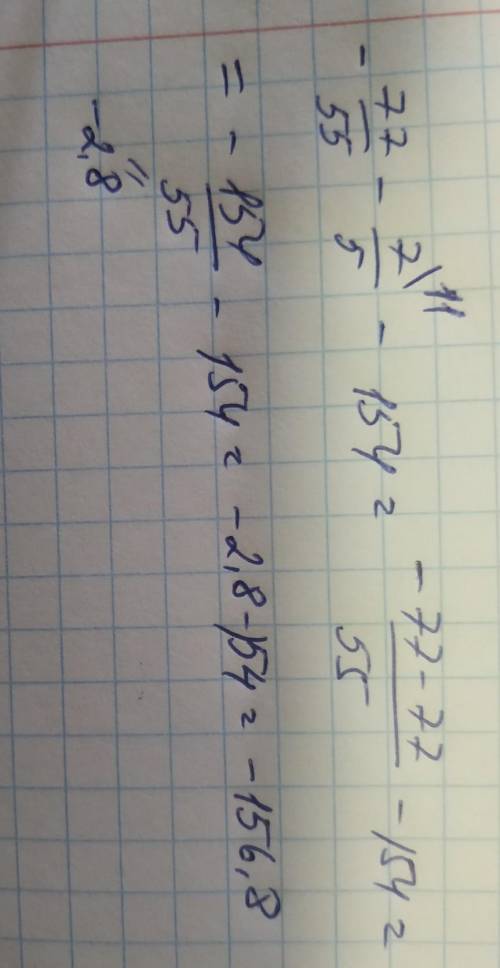 - 77/55 - 7\11/5 - 154 = -77-77/55 - 154 =
= - 154/55 - 154 = -2,8-154 = -156,8
"
-2,8